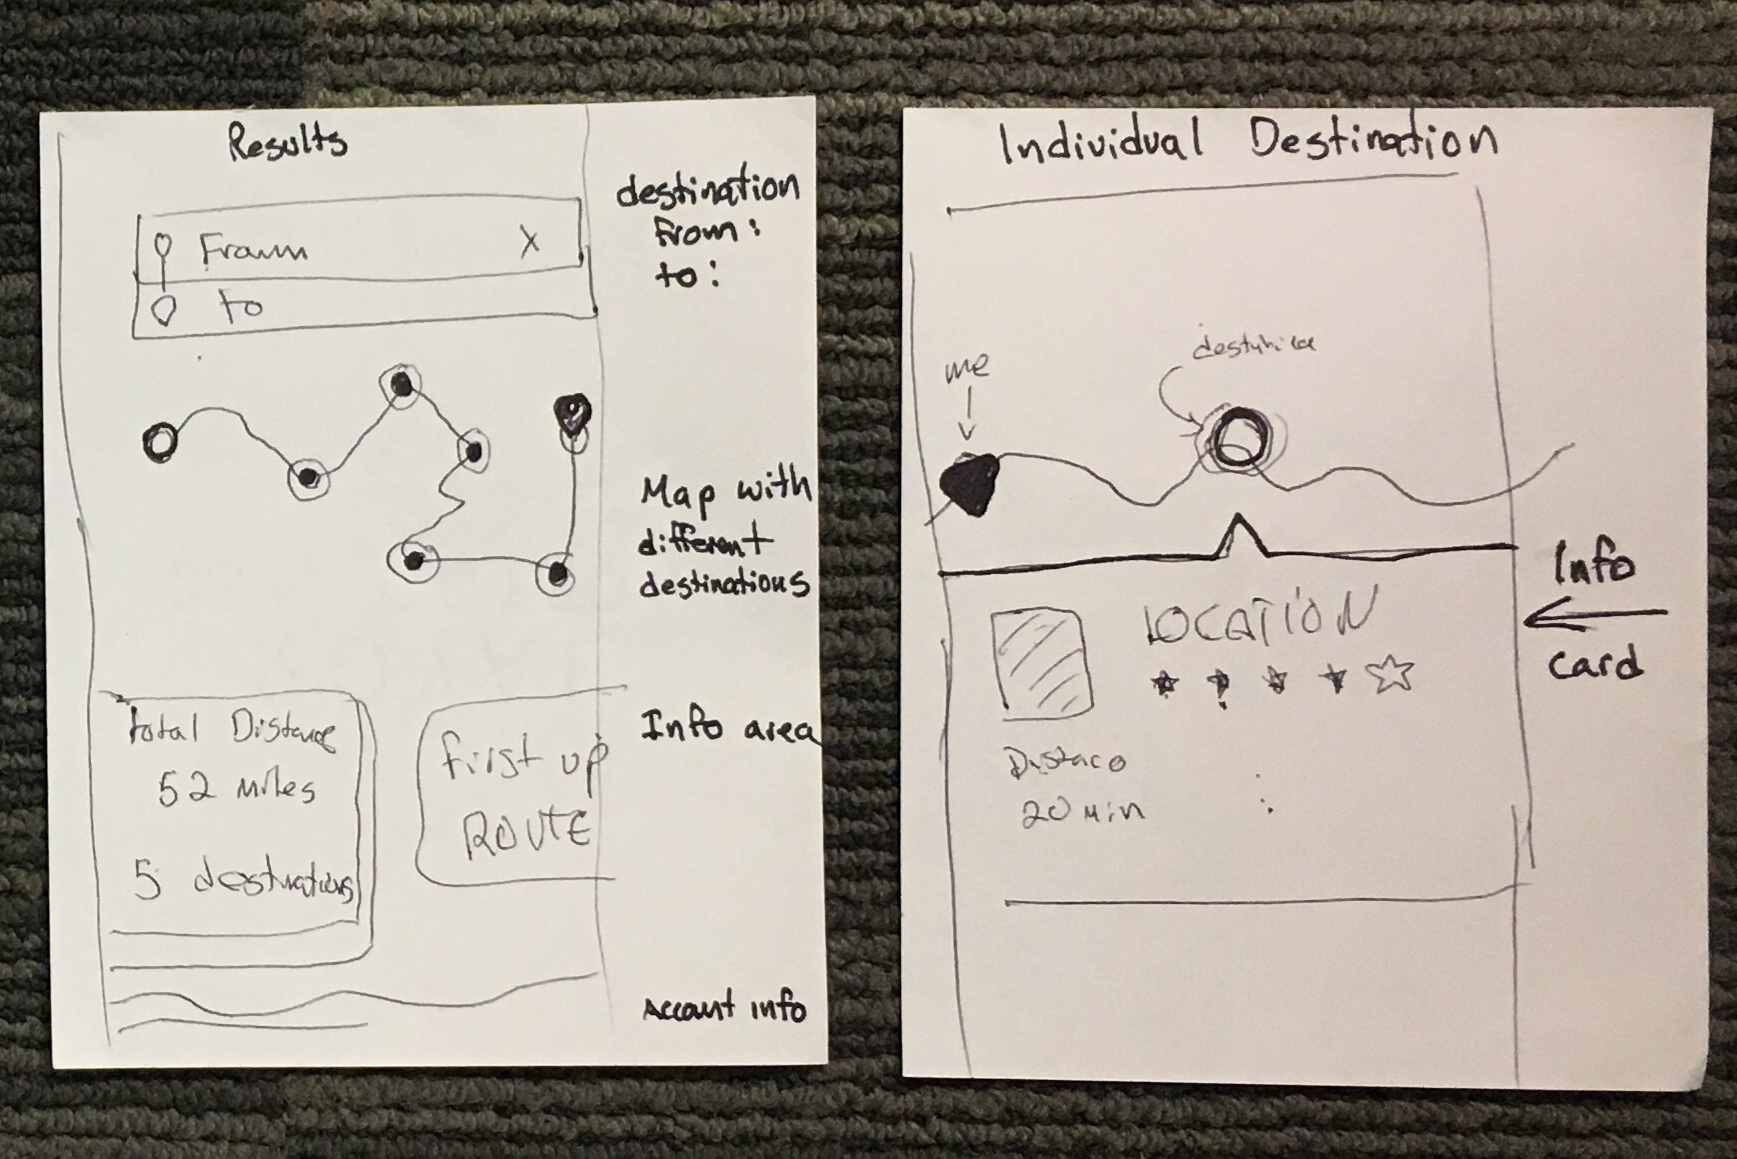 Results
From X
to
destination
from:
to:
Map with
different
destinations
total Distance
52 miles
5 destinations
first up
ROUTE
Info area
Account info
Individual Destination
me
LOCATION
20 Min
Info
card